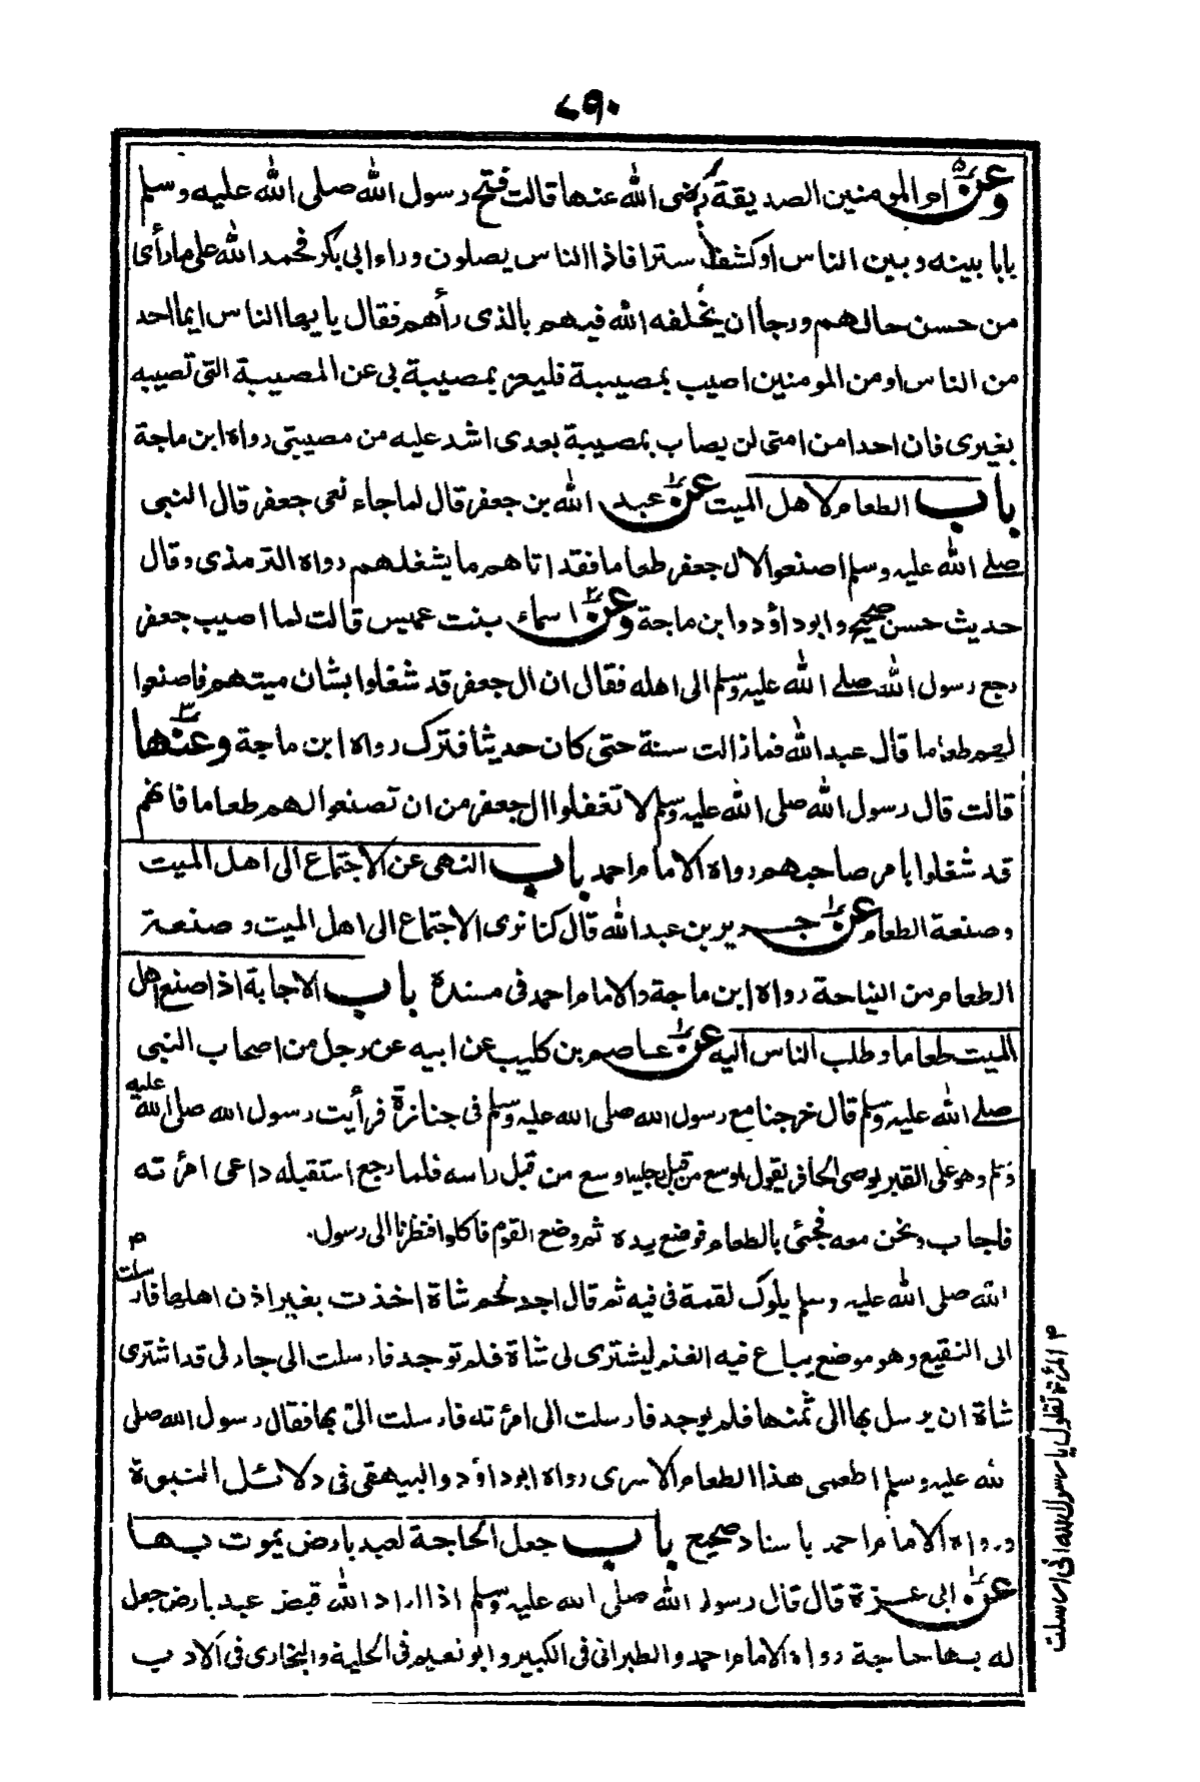 ٧٩٠
وعن ام المومنين الصديقة رضى الله عنها قالت فتح رسول الله صلى الله عليه وسلم
بابا بينه وبين الناس اوكشف سترا فاذا الناس يصلون وراء ابى بكر فحمد الله على ما رأى
من حسن حالهم ورجا ان يخلفه الله فيهم بالذى رأهم فقال يا يها الناس ايما احد
من الناس او من المومنين اصيب بمصيبة فليعز بمصيبة بى عن المصيبة التى تصيبه
بغيرى فان احدا من امتى لن يصاب بمصيبة بعدى اشد عليه من مصيبتى رواه ابن ماجة
باب الطعام لاهل الميت عن عبد الله بن جعفر قال لما جاء نعى جعفر قال النبى
صلے الله عليه وسلم اصنعوا لال جعفر طعاما فقد اتاهم ما يشغلهم رواه الترمذى وقال
حديث حسن صحيح وابو داؤد وابن ماجة وعن اسماء بنت عميس قالت لما اصيب جعفر
رجع رسول الله صلے الله عليه وسلم الى اهله فقال ان ال جعفر قد شغلوا بشان ميتهم فاصنعوا
لهم طعاما قال عبد الله فما زالت سنة حتى كان حديثا فترك رواه ابن ماجة وعنها
قالت قال رسول الله صلى الله عليه وسلم لا تغفلوا ال جعفر من ان تصنعوا لهم طعاما فانهم
قد شغلوا بامر صاحبهم رواه الامام احمد باب النهى عن الاجتماع الى اهل الميت
وصنعة الطعام عن جرير بن عبد الله قال كنا نرى الاجتماع الى اهل الميت وصنعة
الطعام من النياحة رواه ابن ماجة والامام احمد فى مسنده باب الاجابة اذا صنع اهل
الميت طعاما وطلب الناس اليه عن عاصم بن كليب عن ابيه عن رجل من اصحاب النبى
صلے الله عليه وسلم قال خرجنا مع رسول الله صلى الله عليه وسلم فى جنازة فرأيت رسول الله صلى الله عليه
وسلم وهو على القبر يوصى الحافر يقول اوسع من قبل رجليه اوسع من قبل راسه فلما رجع استقبله داعى امرأته
فاجاب ونحن معه فجئى بالطعام فوضع يده ثم وضع القوم فاكلوا فنظرنا الى رسول.
الله صلى الله عليه وسلم يلوك لقمة فى فيه ثم قال اجد لحم شاة اخذت بغير اذن اهلها فارسلت ٣
الى النقيع وهو موضع يباع فيه الغنم ليشترى لى شاة فلم توجد فارسلت الى جار لى قد اشترى
شاة ان يرسل بها الى ثمنها فلم يوجد فارسلت الى امرأته فارسلت الى بها فقال رسول الله صلى
لله عليه وسلم اطعمى هذا الطعام الاسرى رواه ابو داؤد والبيهقى فى دلائل النبوة
ورواه الامام احمد باسناد صحيح باب جعل الحاجة لعبد بارض يموت بها
عن ابى عزة قال قال رسول الله صلى الله عليه وسلم اذا اراد الله قبض عبد بارض جعل
له بها حاجة رواه الامام احمد والطبرانى فى الكبير وابو نعيم فى الحلية والبخارى فى الادب
٣ المرأة تقول يا رسول الله انى ارسلت